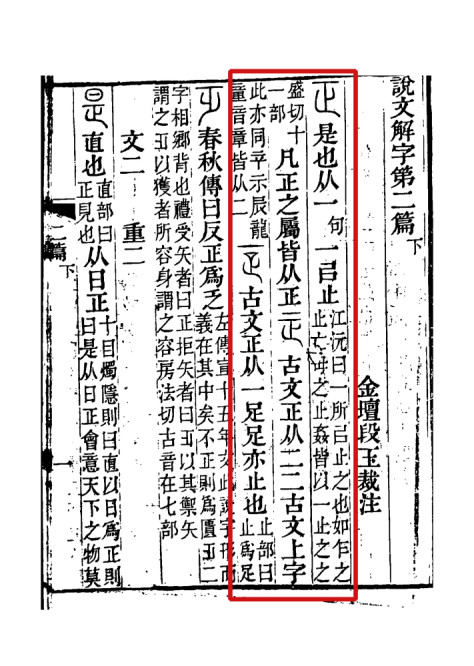 說文解字第二篇下
金壇段玉裁注
正 是也从一句一㠯止江沅曰一所㠯止之也如乍之止亡毋之止姦皆以一止之之
盛切十一部凡正之屬皆从正 古文正从二二古文上字
此亦同䇂示辰龍童音章皆从二 古文正从一足足亦止也止部曰止爲足
春秋傳曰反正爲乏左傳宣十五年文此說字形而義在其中矣不正則爲匱乏二
字相鄉背也禮受矢者曰正拒矢者曰乏以其禦矢謂之乏以獲者所容身謂之容房法切古音在七部
文二 重二
昰 直也直部曰正見也从日正十目燭隱則曰直以日爲正則曰是从日正會意天下之物莫
二篇下